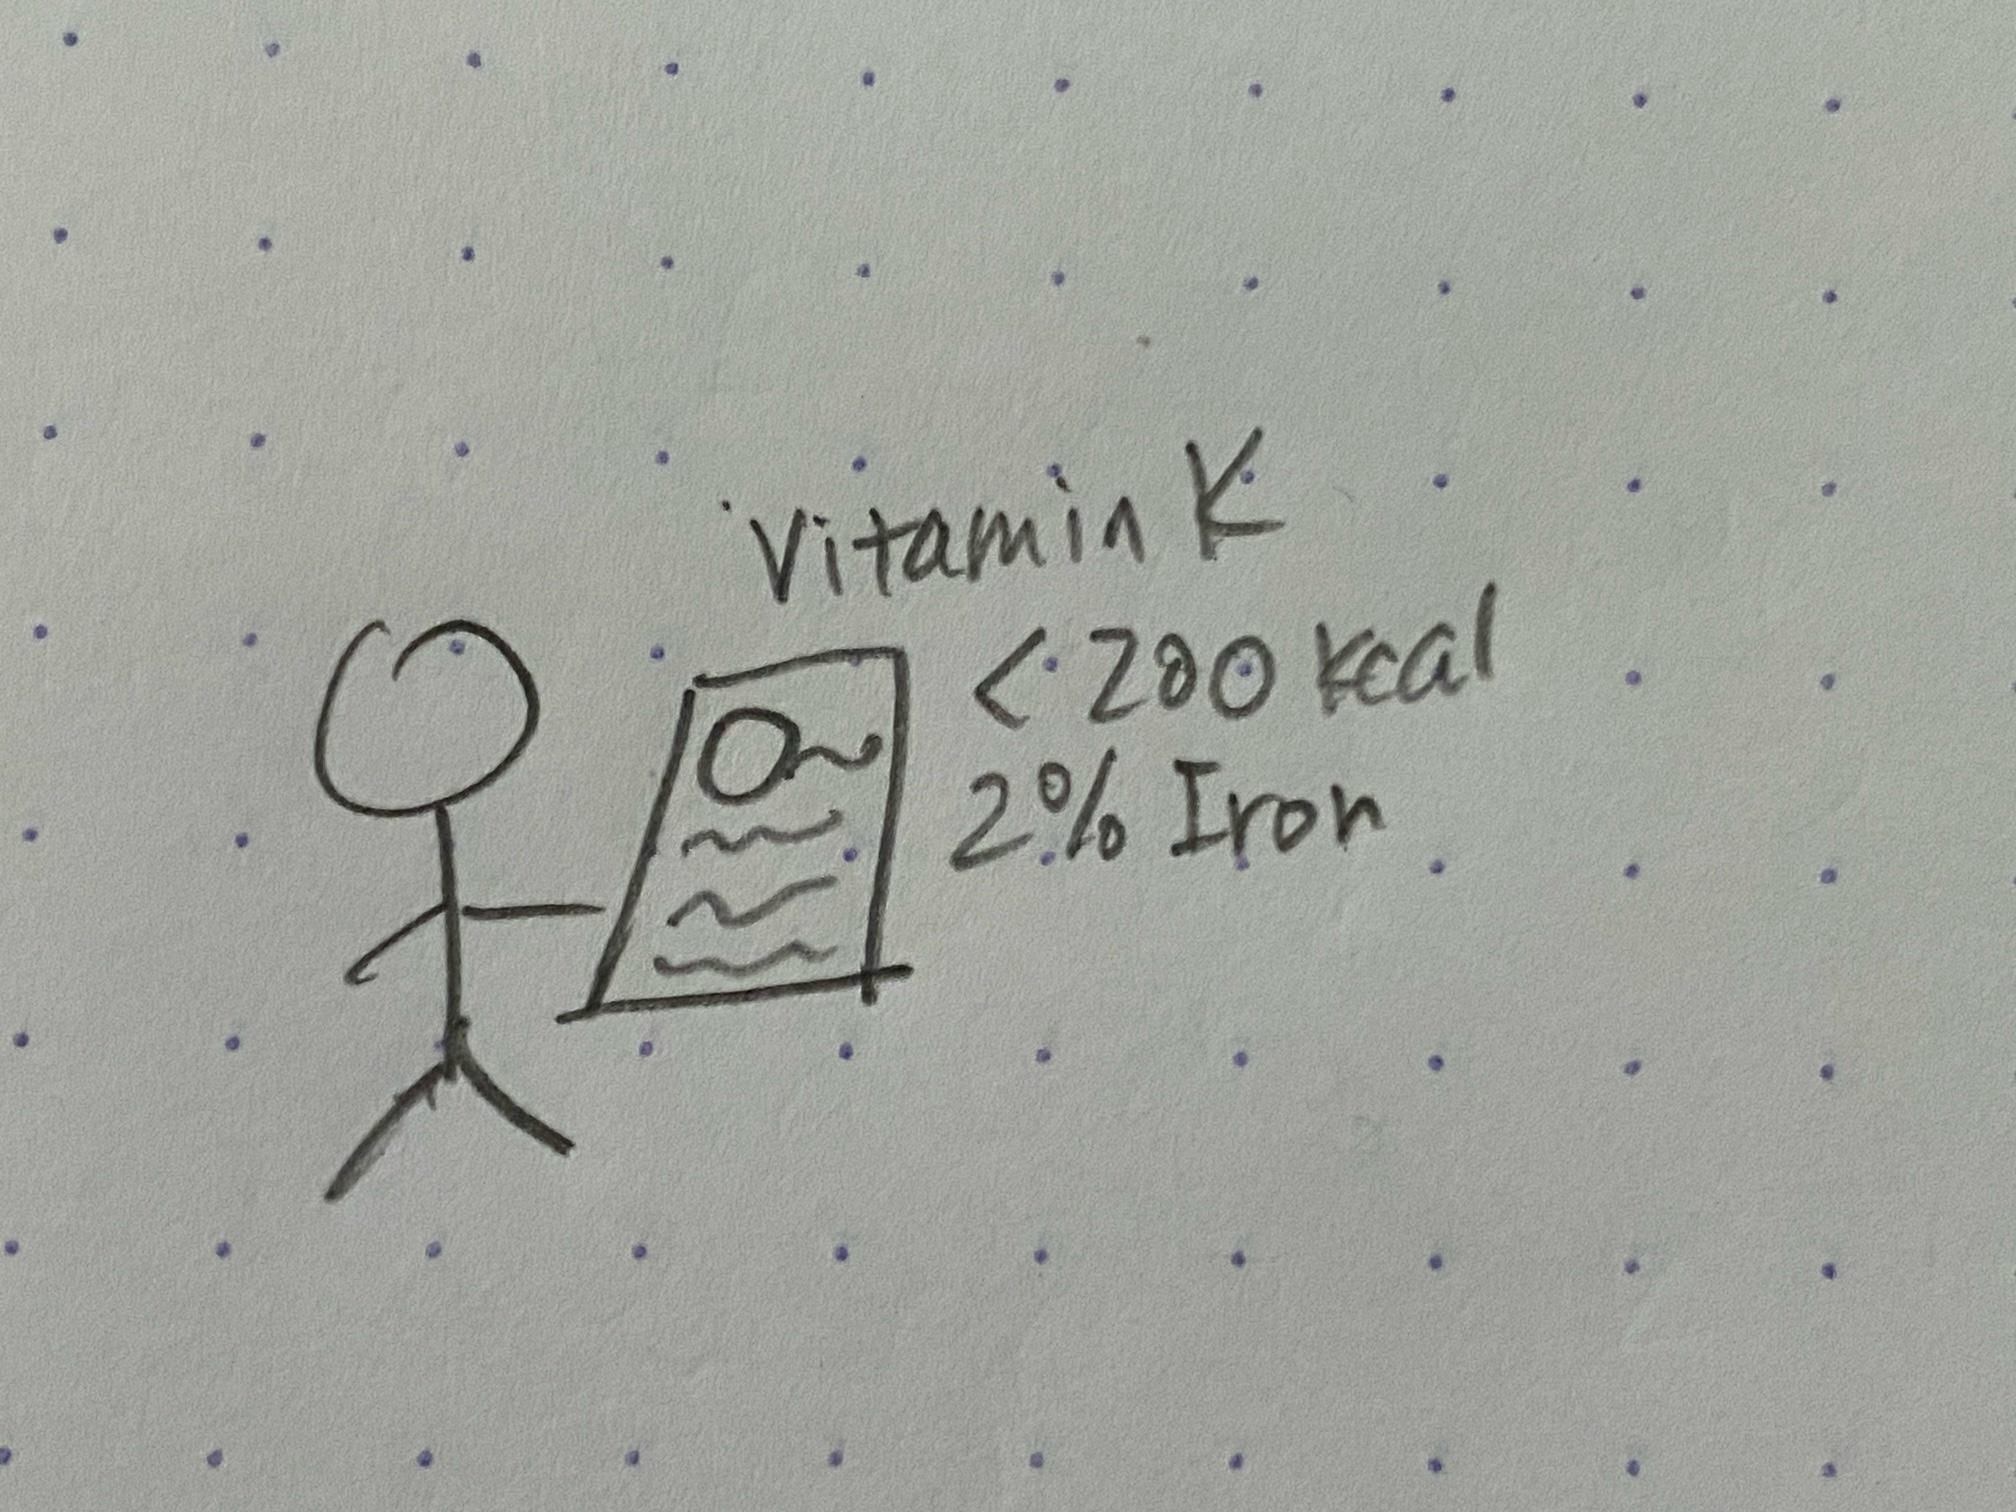 Vitamin K
< 200 kcal
2% Iron